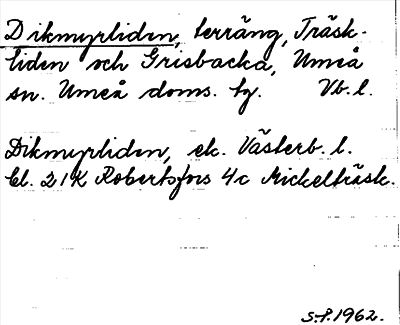 Dikmyrliden, terräng, Träsk-
liden och Grisbacka, Umeå
sn. Umeå doms. tg. Vb. l.
Dikmyrliden, ek. Västerb. l.
bl. 21K Robertsfors 4c Mickelträsk.
S.P. 1962.